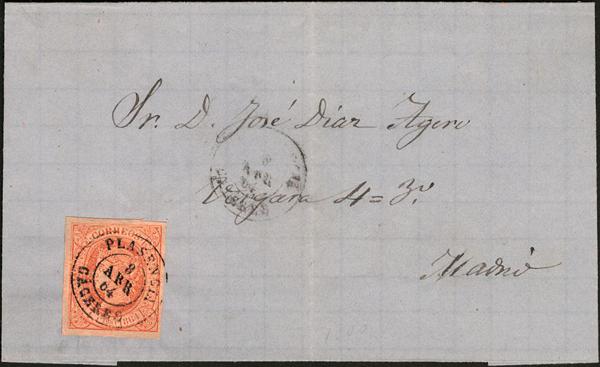 Sr. D. José Díaz Agero
8
ABR
Vergara 4=3º
Madrid
CORREOS
PLASENCIA
8
ABR
64
CACERES